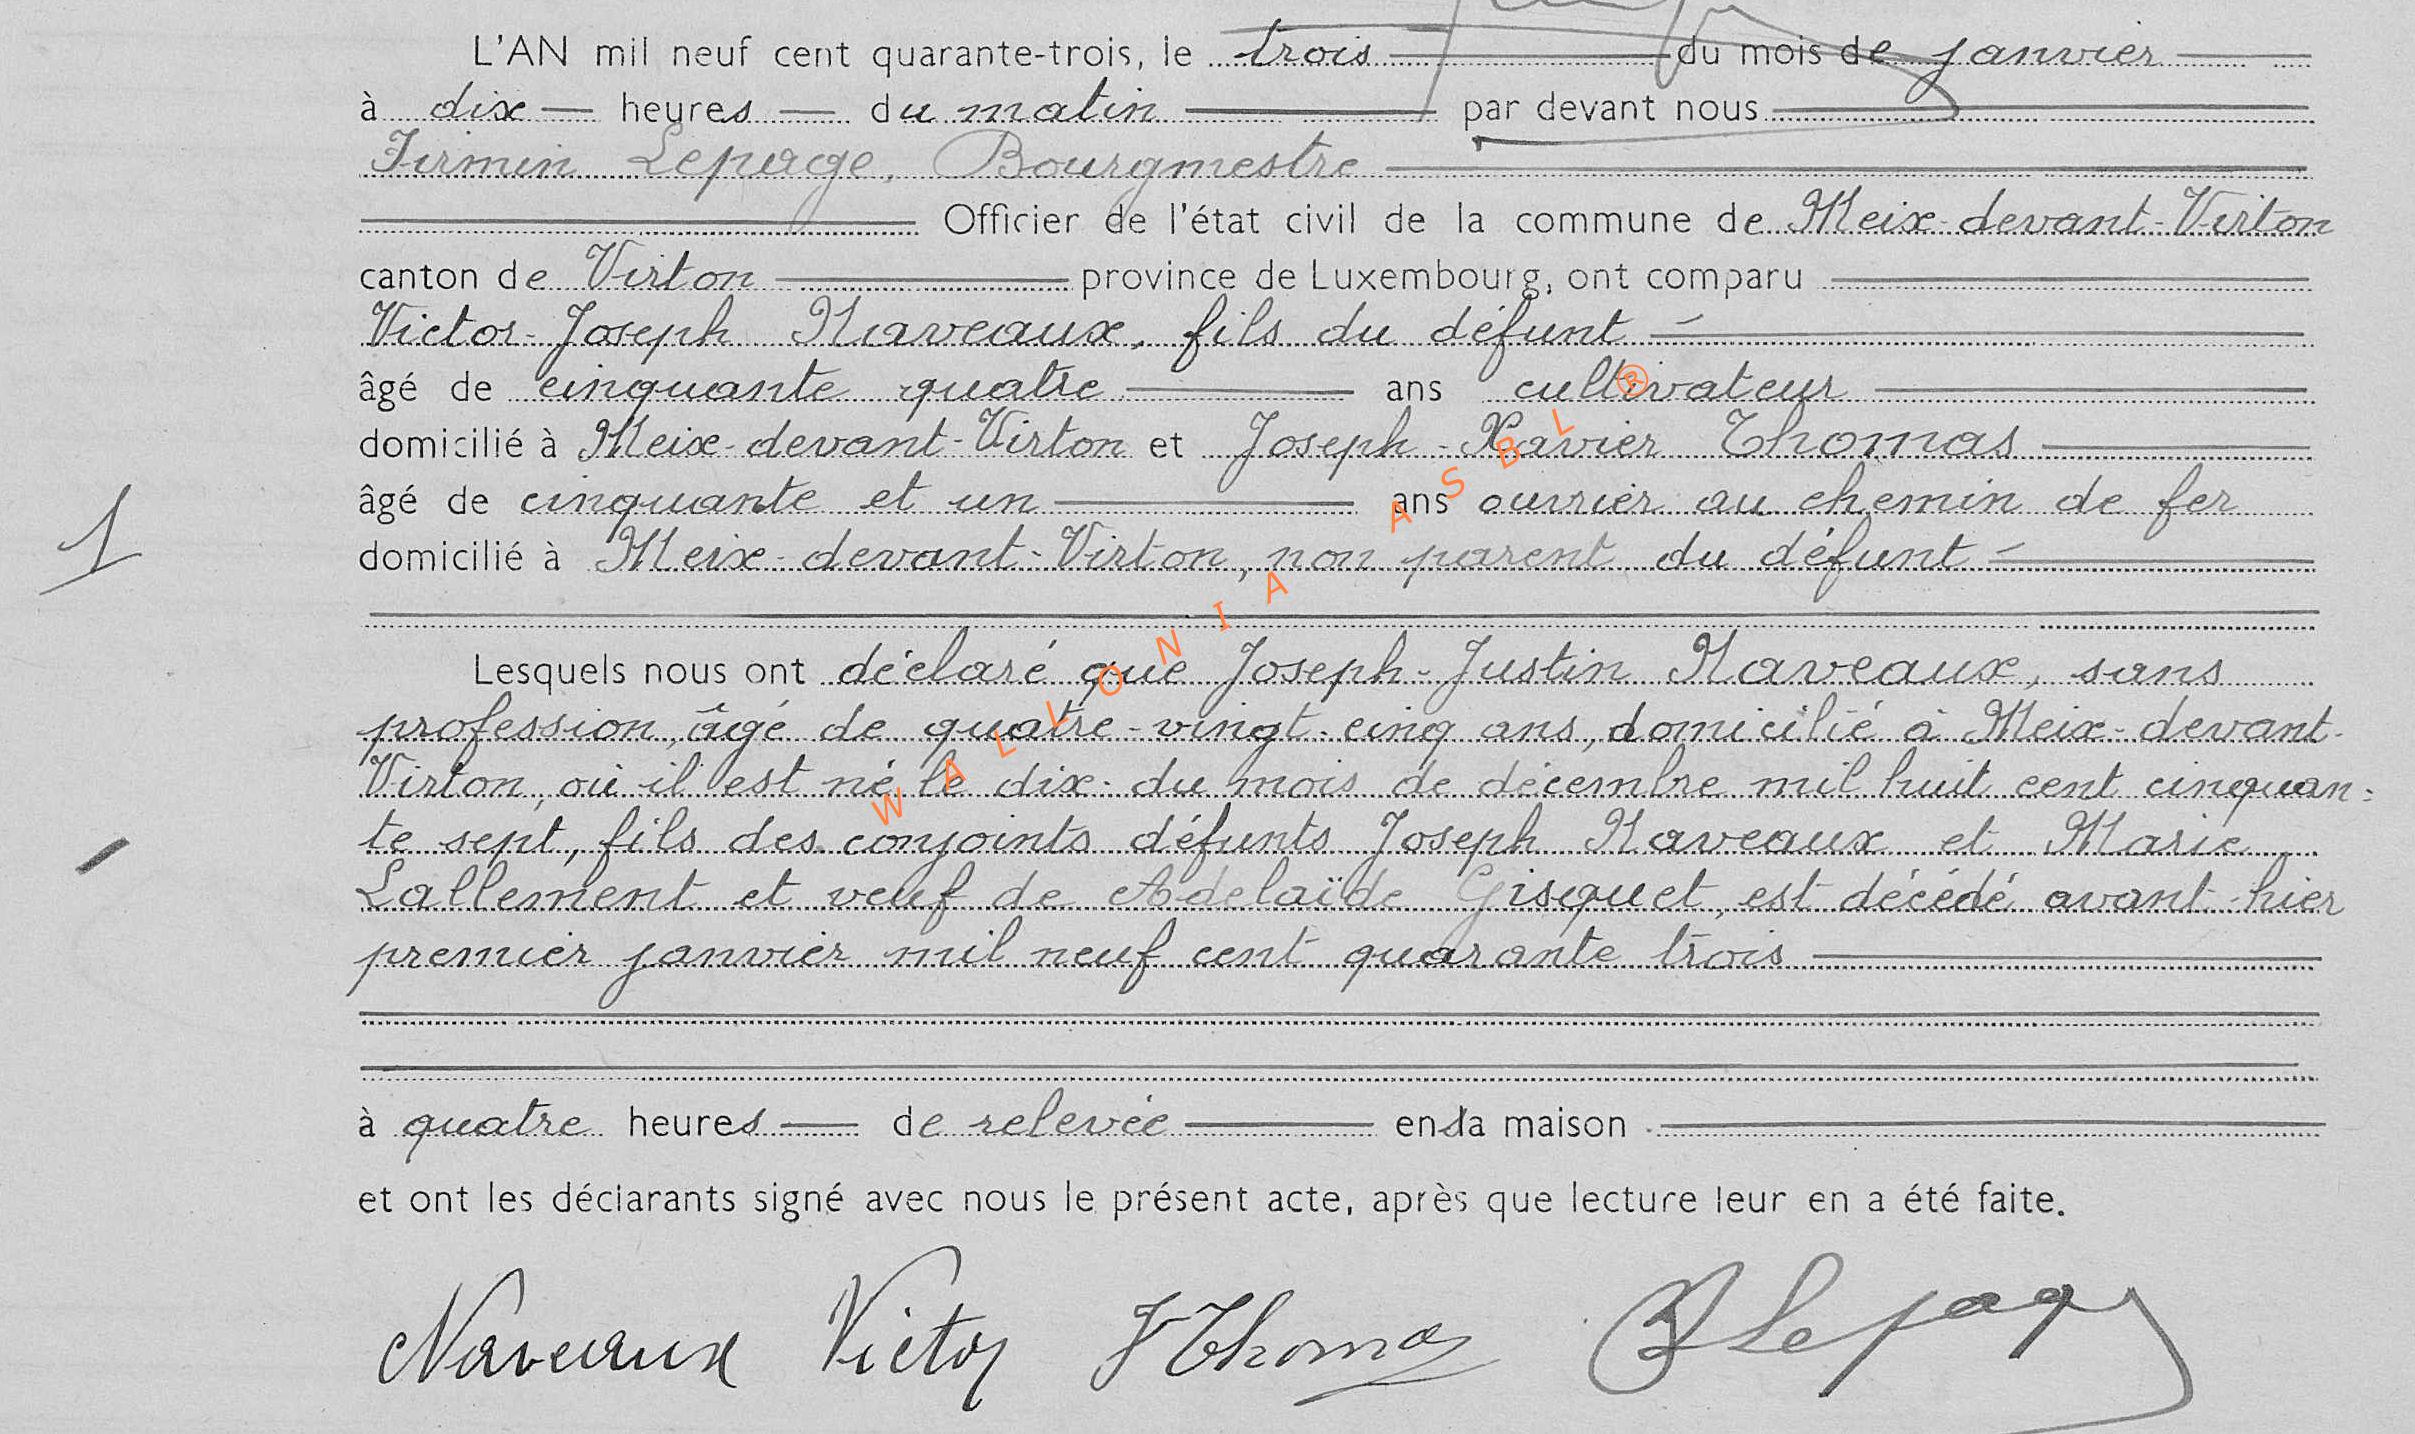 L'AN mil neuf cent quarante-trois, le trois du mois de janvier
à dix heures du matin par devant nous
Firmin Lepage, Bourgmestre
Officier de l'état civil de la commune de Meix-devant-Virton
canton de Virton province de Luxembourg, ont comparu
Victor-Joseph Naveaux, fils du défunt
âgé de cinquante quatre ans cultivateur
domicilié à Meix-devant-Virton et Joseph-Xavier Thomas
âgé de cinquante et un ans ouvrier au chemin de fer
1
domicilié à Meix-devant-Virton, non parent du défunt
Lesquels nous ont déclaré que Joseph-Justin Naveaux, sans
profession, âgé de quatre-vingt-cinq ans, domicilié à Meix-devant-
Virton, où il est né le dix du mois de décembre mil huit cent cinquan=
te sept, fils des conjoints défunts Joseph Naveaux et Marie
Lallement et veuf de Adelaïde Gisquet, est décédé avant-hier
premier janvier mil neuf cent quarante trois
à quatre heures de relevée en sa maison
et ont les déclarants signé avec nous le présent acte, après que lecture leur en a été faite.
Naveaux Victor J Thomas F Lepage
WALLONIA ASBL ®